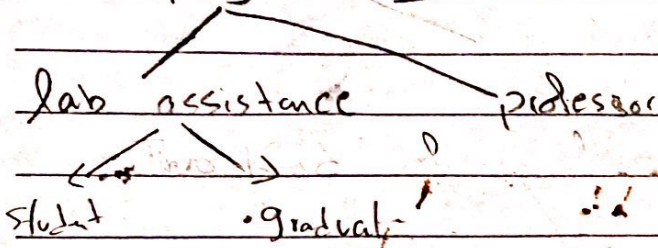 lab assistance professor
student . graduate